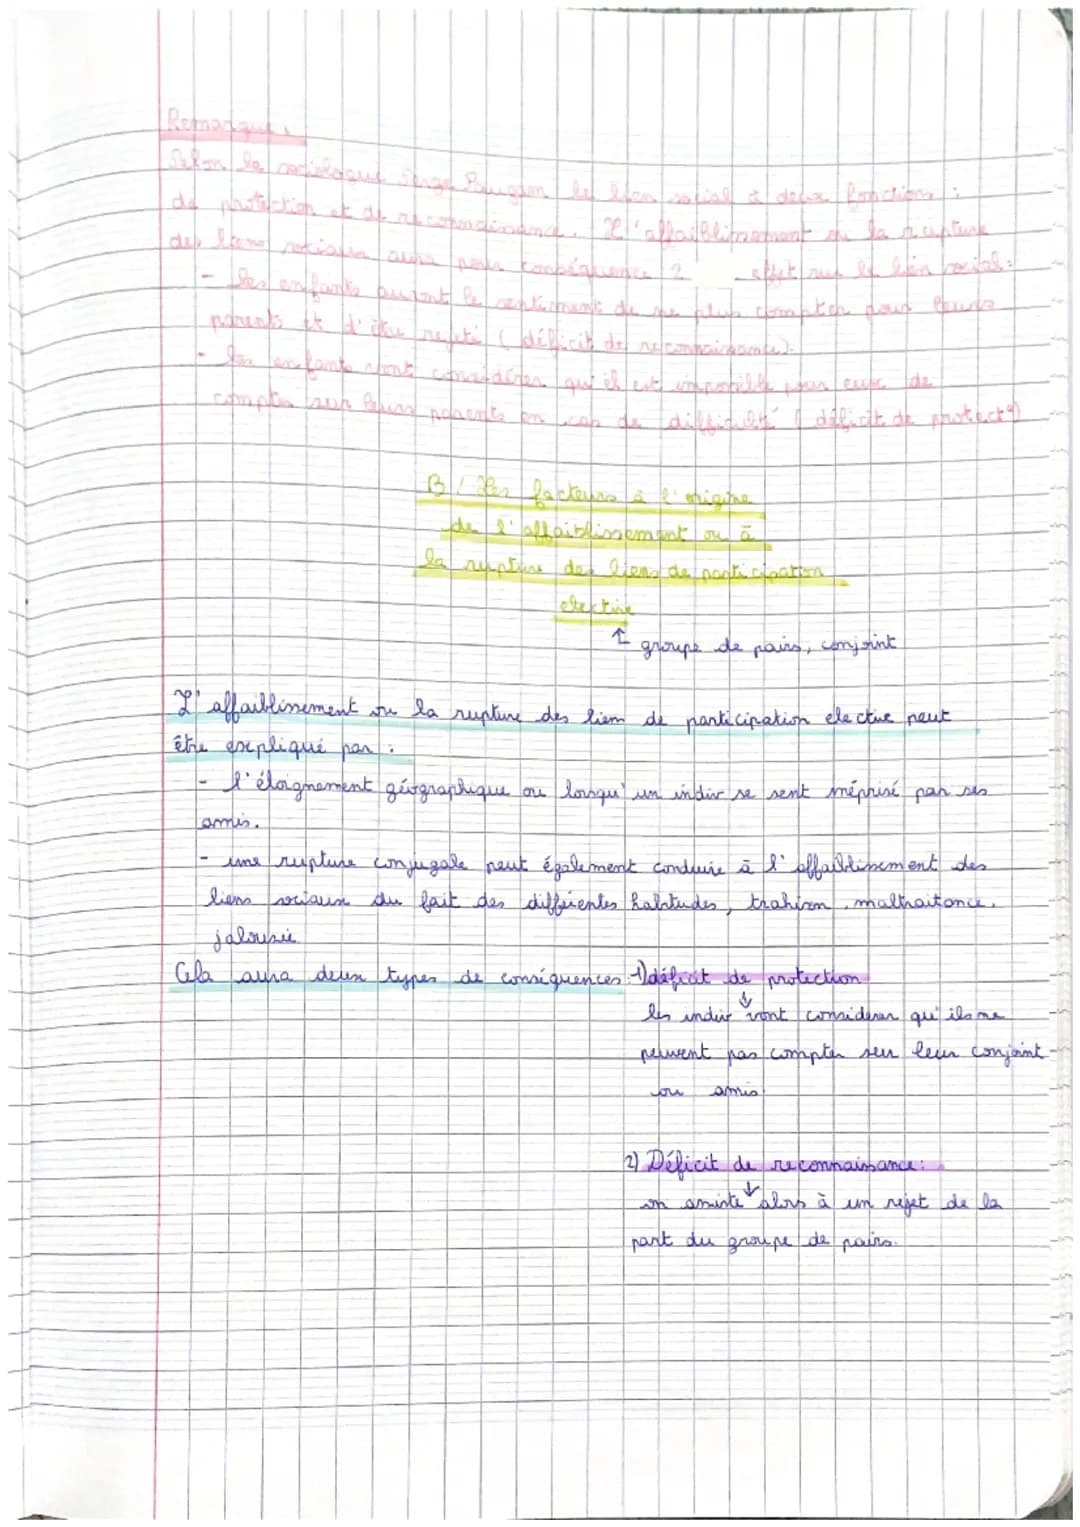 Remarque :
Selon le sociologue Serge Paugam le lien social à deux fonctions :
de protection et de reconnaissance. L'affaiblissement ou la rupture
des liens sociaux aura pour conséquence 2 effet sur le lien social :
- les enfants auront le sentiment de ne plus compter pour leurs
parents et d'être rejeté (déficit de reconnaissance).
- les enfants vont considérer qu'il est impossible pour eux de
compter sur leurs parents en cas de difficulté (déficit de protect°)
B / Les facteurs à l'origine
de l'affaiblissement ou à
la rupture des liens de participation
elective
↑ groupe de pairs, conjoint
L'affaiblissement ou la rupture des lien de participation elective peut
être expliqué par :
- l'éloignement géographique ou lorsqu'un indiv se sent méprisé par ses
amis.
- une rupture conjugale peut également conduire à l'affaiblissement des
liens sociaux du fait des différentes habitudes, trahison, maltraitance,
jalousie.
Cela aura deux types de conséquences : 1) déficit de protection
↓
les indiv vont considérer qu'ils ne
peuvent pas compter sur leur conjoint
ou amis.
2) Déficit de reconnaissance :
↓
on assiste alors à un rejet de la
part du groupe de pairs.